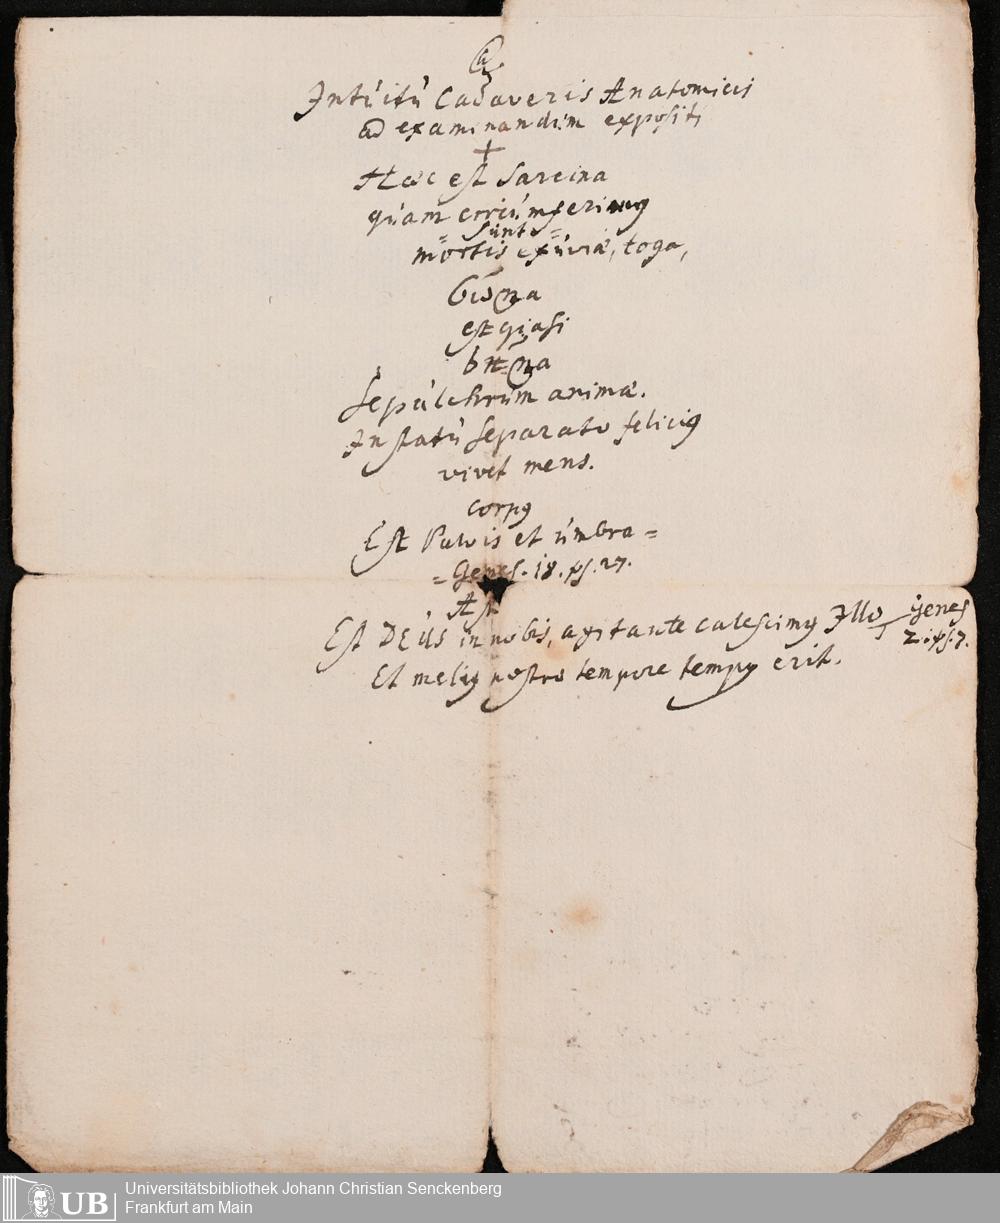 Intúitú Cadaveris Anatomicis
ad examinandúm expositi
Hæc est Sarcina
qúam circúmferimus
súnt
mortis exúviæ, toga,
est qúasi
Sepúlchrúm animæ.
In statú separato felicius
vivet mens.
corpus
Est Pulvis et úmbra =
= Genes. 18. ps. 27.
Ast
Est DEÚS in nobis, agitante calescimus Illo Genes
2. ps. 7.
Et melius nostro tempore tempus erit.
Universitätsbibliothek Johann Christian Senckenberg
Frankfurt am Main
UB